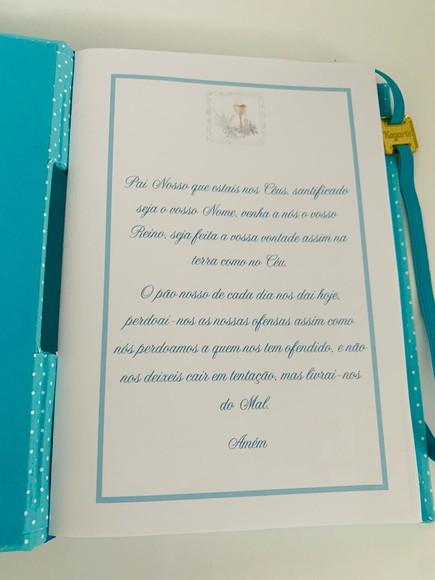 Kazarte
Pai Nosso que estais nos Céus, santificado
seja o vosso Nome, venha a nós o vosso
Reino, seja feita a vossa vontade assim na
terra como no Céu.
O pão nosso de cada dia nos dai hoje,
perdoai-nos as nossas ofensas assim como
nós perdoamos a quem nos tem ofendido, e não
nos deixeis cair em tentação, mas livrai-nos
do Mal.
Amém